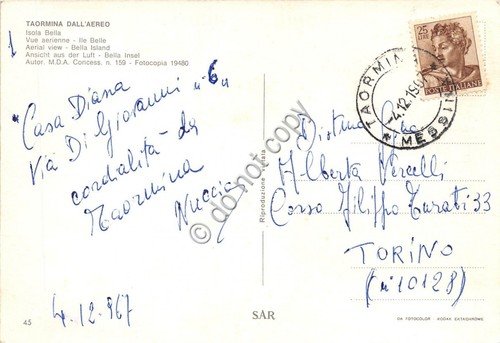 TAORMINA DALL'AEREO
Isola Bella
Vue aerienne - Ile Belle
Aerial view - Bella Island
Ansicht aus der Luft - Bella Insel
Autor. M.D.A. Concess. n. 159 - Fotocopia 19480
"Casa Diana
Via Di Giovanni n° 6"
cordialità da
Taormina
Nuccia
4.12.967
45
Riproduzione vietata
SAR
25
POSTE ITALIANE
TAORMINA
4.12.19
* MESSINA
Alberta Vercelli
Corso Filippo Turati 33
TORINO
(n° 10128)
DA FOTOCOLOR KODAK EKTACHROME
do not copy